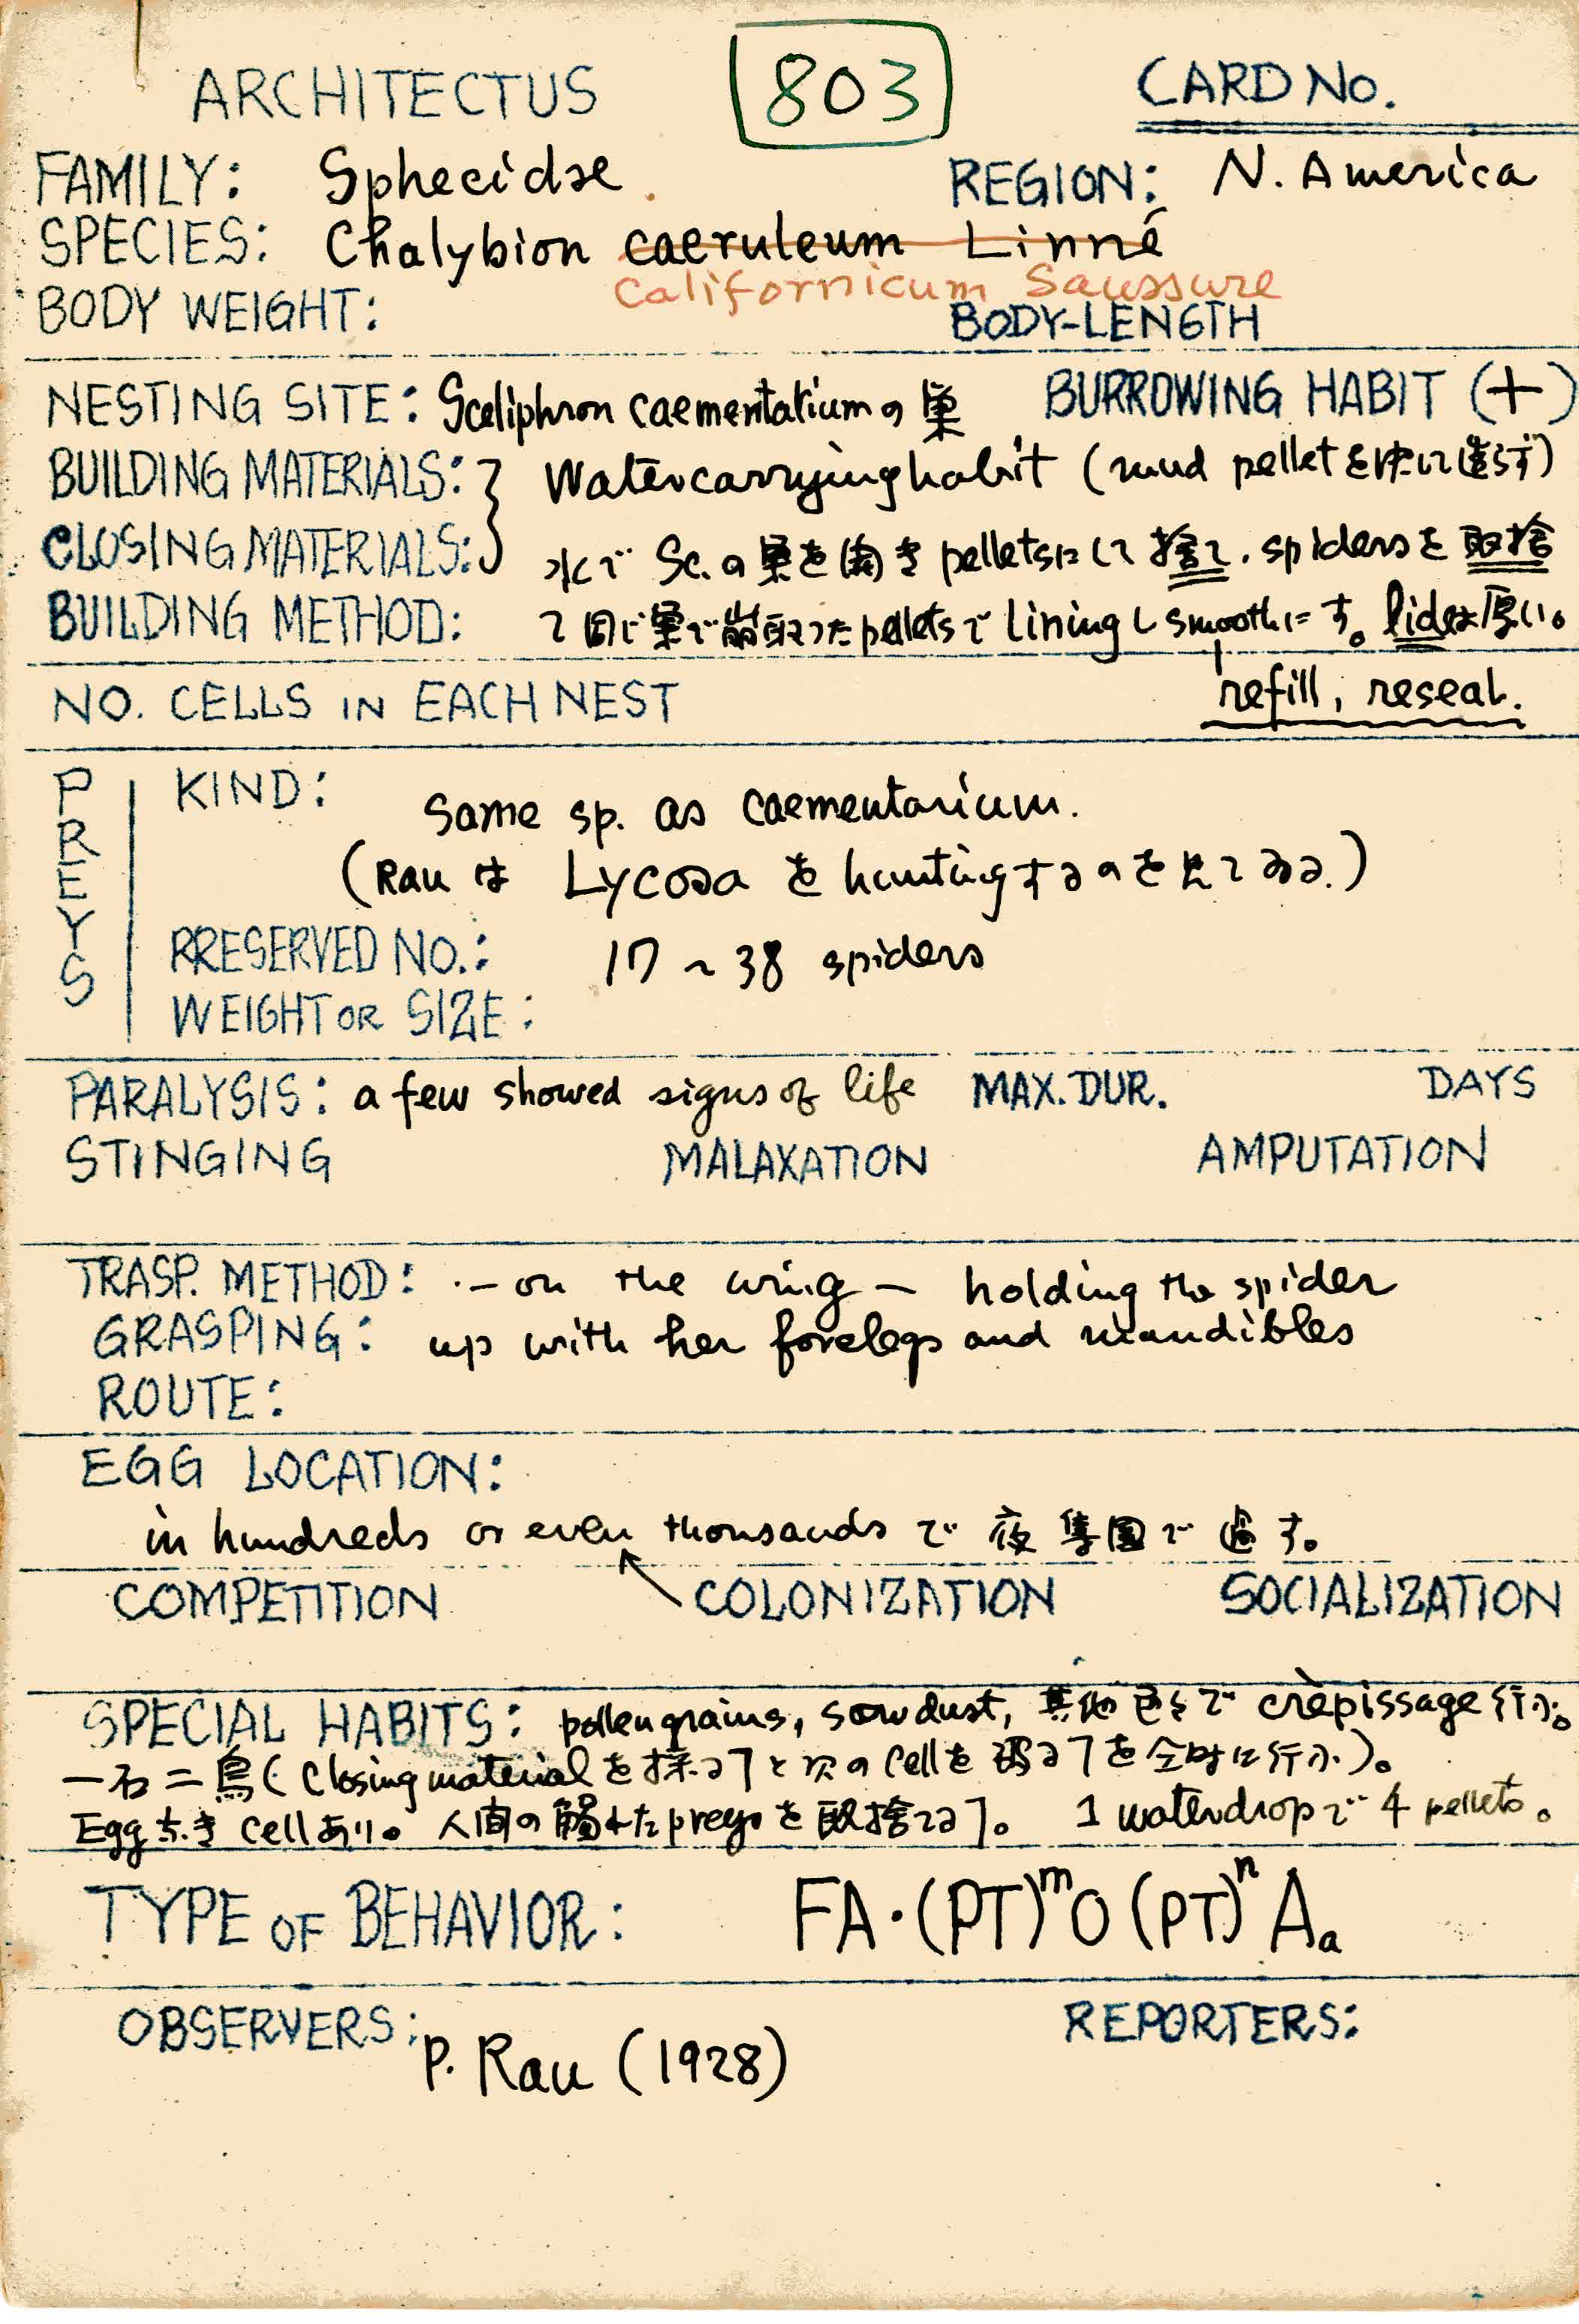 ARCHITECTUS 803 CARD NO.
FAMILY: Sphecidae. REGION: N. America
SPECIES: Chalybion caeruleum Linné
Californicum Saussure
BODY WEIGHT: BODY-LENGTH
NESTING SITE: Sceliphron caementatiumの巣 BURROWING HABIT (+)
BUILDING MATERIALS: Watercarrying habit (mud pelletを
CLOSING MATERIALS: 水で Sc.の巣を pelletsにして捨て、spidersを取捨
BUILDING METHOD: て 巣で pelletsでliningしsmoothにす。lidは厚い。
NO. CELLS IN EACH NEST refill, reseal.
PREYS
KIND: Same sp. as caementarium.
(Rau は Lycosa を huntingするのを見てゐる.)
PRESERVED NO.: 17 ~ 38 spiders
WEIGHT OR SIZE:
PARALYSIS: a few showed signs of life MAX. DUR. DAYS
STINGING MALAXATION AMPUTATION
TRASP. METHOD: - on the wing - holding the spider
GRASPING: up with her forelegs and mandibles
ROUTE:
EGG LOCATION:
in hundreds or even thousands で 夜集団で過す。
COMPETITION COLONIZATION SOCIALIZATION
SPECIAL HABITS: pollengrains, sawdust, 其他 crèpissage行ふ。
一石二鳥(Closing materialを採る と次のcellを を仝時に行ふ)。
Egg cellあり。人間の觸れたpreysを取捨てる 1 waterdropで 4 pellets.
TYPE OF BEHAVIOR: FA·(PT)ᵐO(PT)ⁿAₐ
OBSERVERS: P. Rau (1928) REPORTERS: